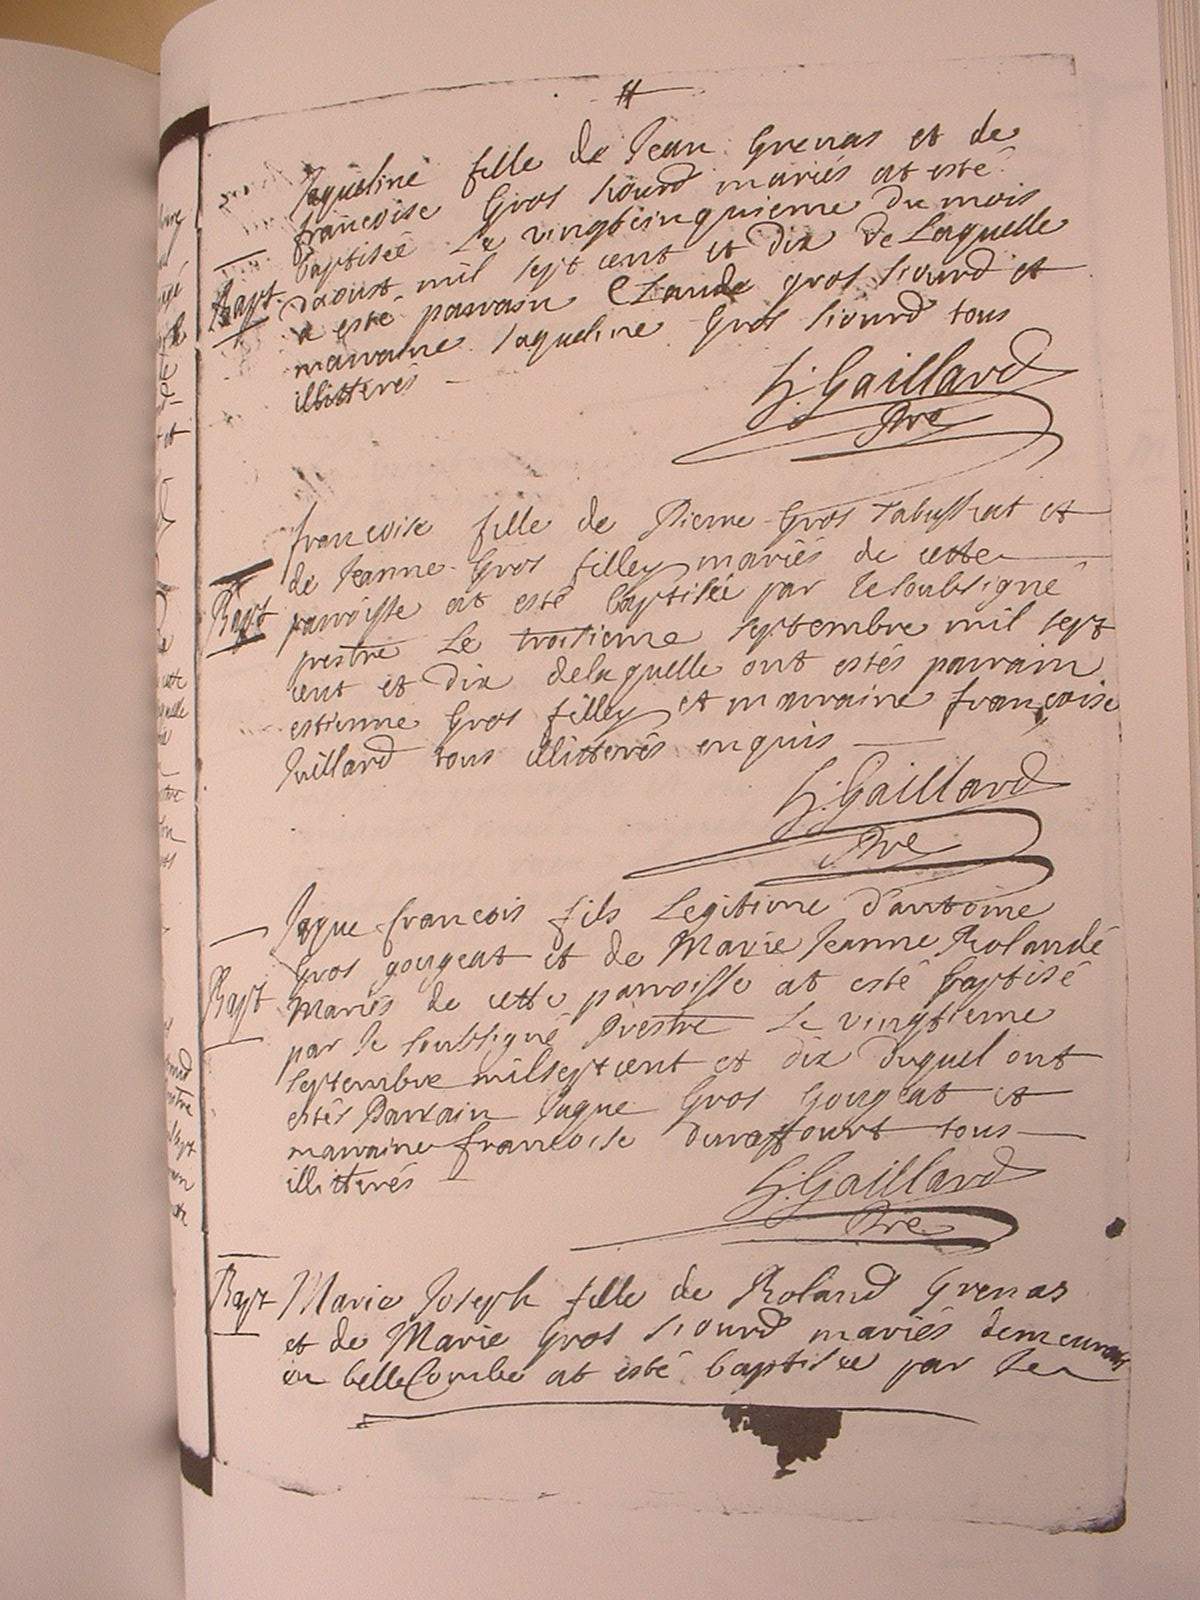 Jaqueline fille de Jean Grenas et de
francoise Gros siourd mariés at esté
Bapt baptiseé Le vingtcinquieme du mois
daoust mil sept cent et dix de Laquelle
a esté parrain Claude gros siourd et
marraine Jaqueline Gros siourd tous
illitterés
Gaillard
Pre
francoise fille de Pierre Gros et
de Jeanne Gros filley mariés de cette
Bapt parroisse at esté baptiseé par le soubsigné
prestre Le troisieme septembre mil sept
cent et dix delaquelle ont estés parrain
estienne Gros filley et marraine françoise
Juillard tous illitterés enquis
Gaillard
Pre
Jaque francois fils Legitime d'antoine
Gros gougeat et de Marie Jeanne Rolandé
Bapt Mariés de cette parroisse at esté baptisé
par le soubsigné Prestre Le vingtieme
septembre mil sept cent et dix duquel ont
estés Parrain Jaque Gros gougeat et
marraine francoise duraffourt tous
illitterés
Gaillard
Pre
Bapt Marie Joseph fille de Roland Grenas
et de Marie Gros siourd mariés demeurans
en belleCombe at esté baptiseé par le